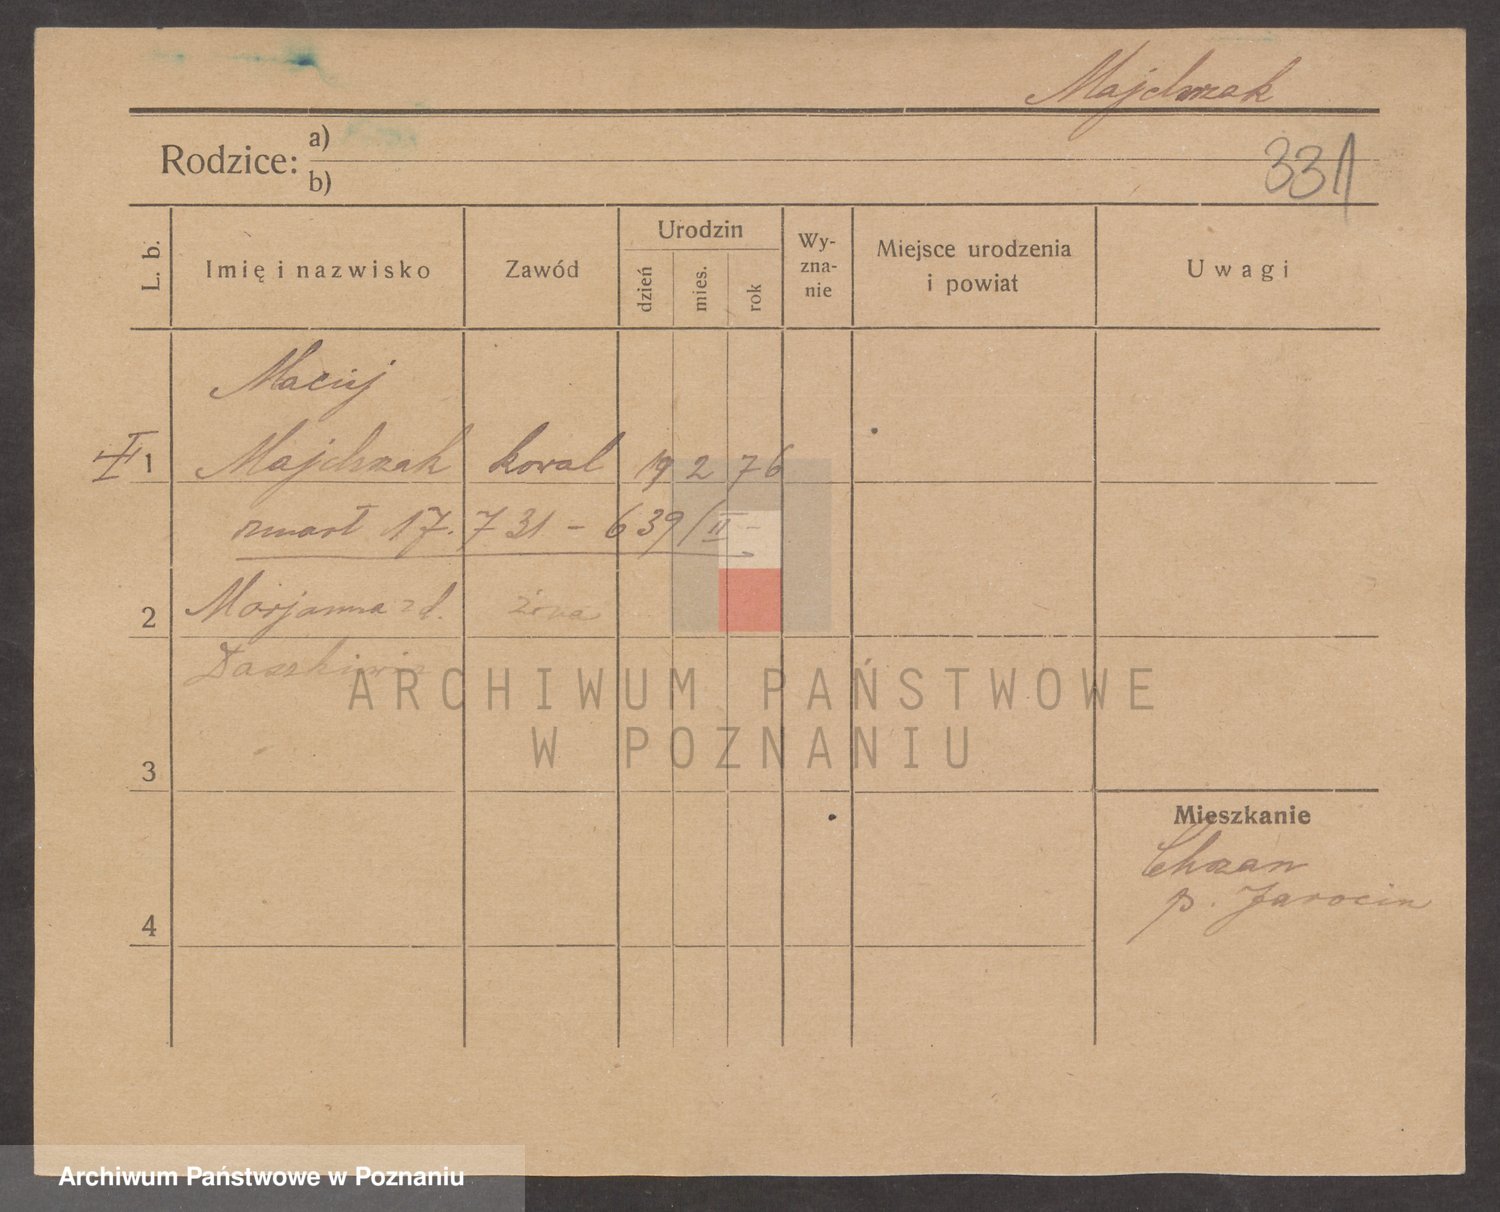 Majchrzak
Rodzice: a)
b)
331
L. b.
Imię i nazwisko
Zawód
Urodzin
dzień
mies.
rok
Wy-
zna-
nie
Miejsce urodzenia
i powiat
Uwagi
Maciej
1 Majchrzak kowal 19 2 76
zmarł 17. 7 31 – 639/II –
2 Marjanna zd. żona
ARCHIWUM PAŃSTWOWE
W POZNANIU
3
Mieszkanie
Chrzan
p. Jarocin
4
Archiwum Państwowe w Poznaniu